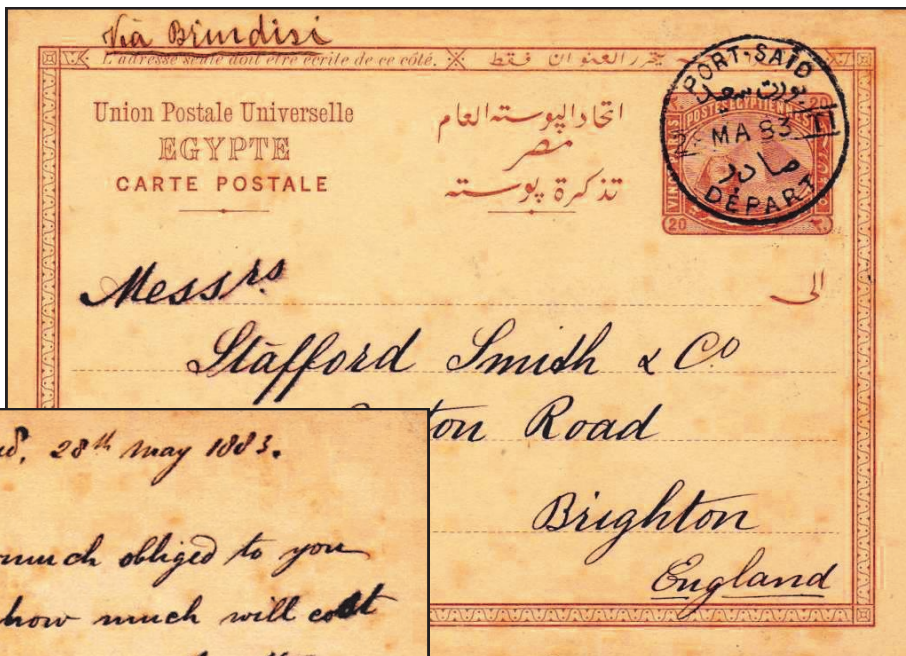 Via Brindisi
L'adresse seule doit être écrite de ce côté. يحرر العنوان فقط
Union Postale Universelle
EGYPTE
CARTE POSTALE
اتحاد البوسته العام
مصر
تذكرة بوسته
PORT-SAID
بورت سعيد
MA 83
صادر
DÉPART
POSTES EGYPTIENNES
20
20
الى
Messrs
Stafford Smith & Co
ton Road
Brighton
England
28th May 1883.
much obliged to you
how much will cost